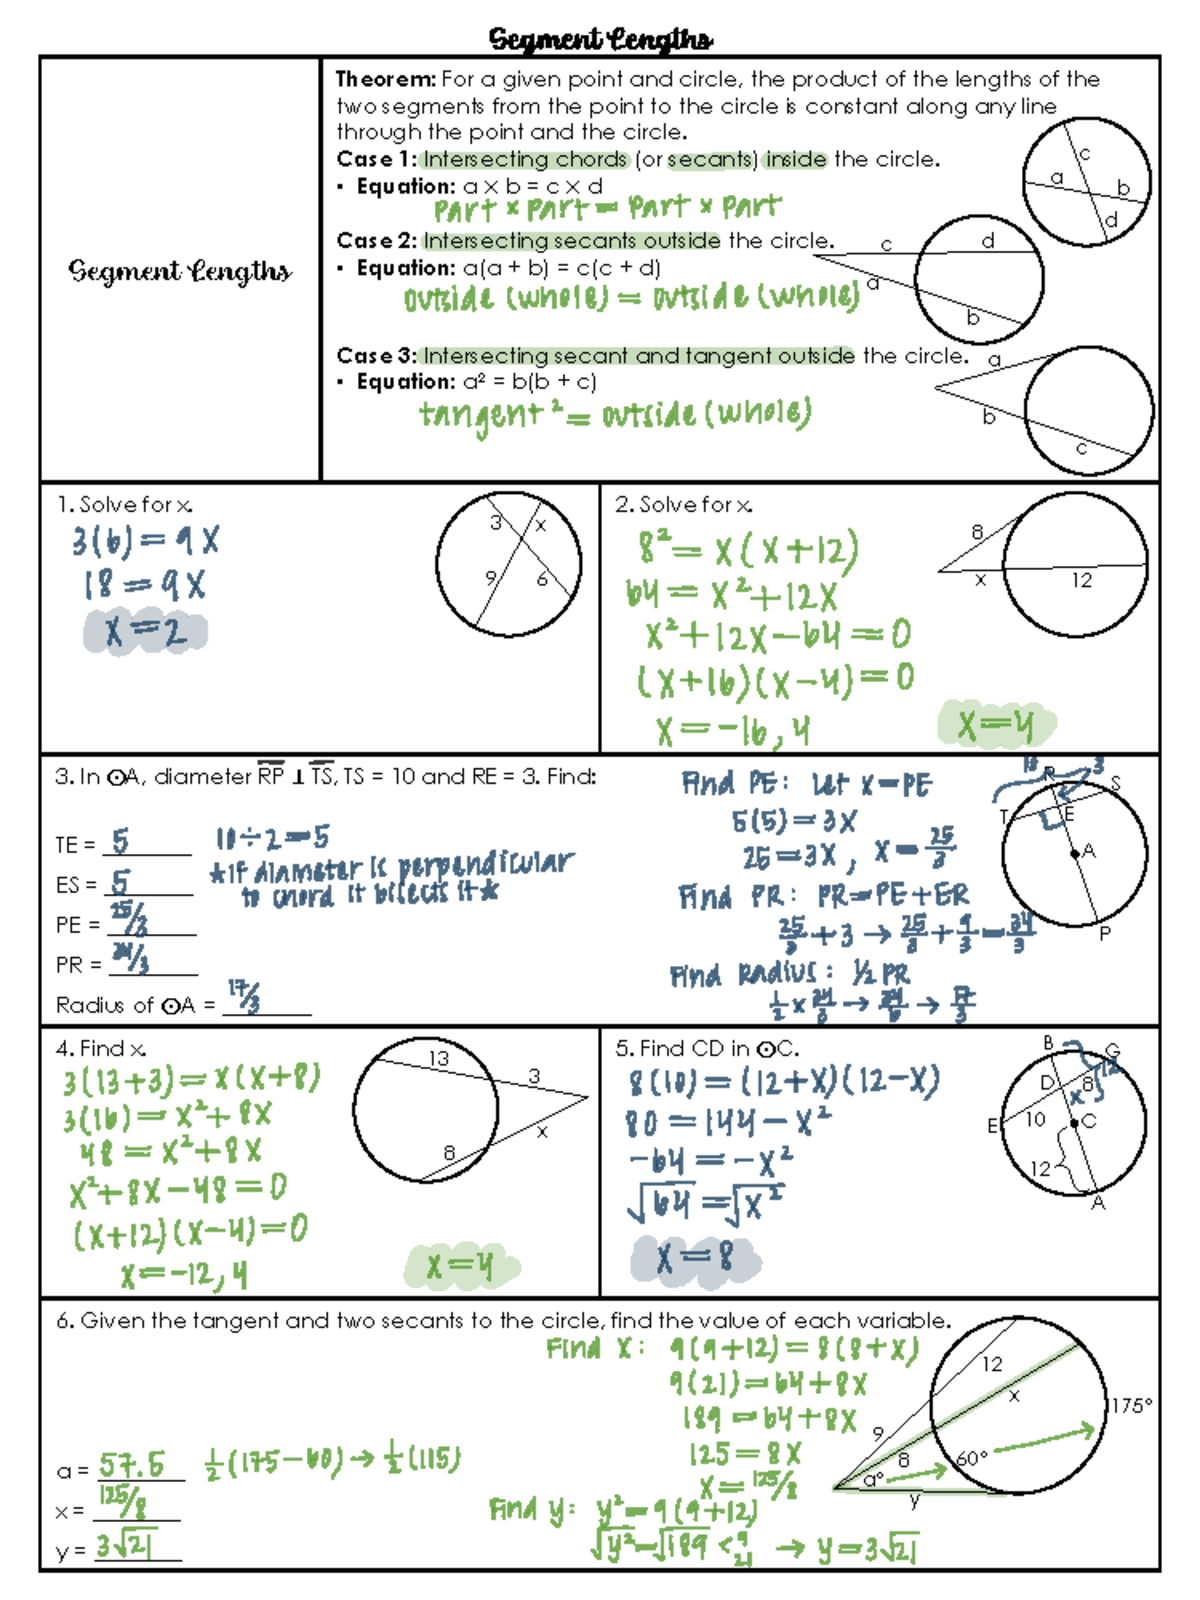 Segment Lengths
Segment Lengths
Theorem: For a given point and circle, the product of the lengths of the
two segments from the point to the circle is constant along any line
through the point and the circle.
Case 1: Intersecting chords (or secants) inside the circle.
• Equation: a × b = c × d
part × part = part × part
a
c
b
d
Case 2: Intersecting secants outside the circle.
• Equation: a(a + b) = c(c + d)
outside (whole) = outside (whole)
c
d
a
b
Case 3: Intersecting secant and tangent outside the circle.
• Equation: a² = b(b + c)
tangent² = outside (whole)
a
b
c
1. Solve for x.
3(6) = 9x
18 = 9x
x = 2
3
x
9
6
2. Solve for x.
8² = x(x+12)
64 = x²+12x
x²+12x-64 = 0
(x+16)(x-4) = 0
x = -16, 4
x = 4
8
x
12
3. In ⊙A, diameter RP ⊥ TS, TS = 10 and RE = 3. Find:
TE = 5
10 ÷ 2 = 5
*if diameter is perpendicular
to chord it bisects it*
ES = 5
PE = 25/3
PR = 34/3
Radius of ⊙A = 17/3
Find PE: Let x = PE
5(5) = 3x
25 = 3x, x = 25/3
Find PR: PR = PE + ER
25/3 + 3 → 25/3 + 9/3 = 34/3
Find Radius: ½ PR
1/2 × 34/3 → 34/6 → 17/3
10
R
3
S
T
E
A
P
4. Find x.
3(13+3) = x(x+8)
3(16) = x²+8x
48 = x²+8x
x²+8x-48 = 0
(x+12)(x-4) = 0
x = -12, 4
x = 4
13
3
8
x
5. Find CD in ⊙C.
8(10) = (12+x)(12-x)
80 = 144 - x²
-64 = -x²
√64 = √x²
x = 8
B
G
12
D
8
x
E
10
C
12
A
6. Given the tangent and two secants to the circle, find the value of each variable.
Find x: 9(9+12) = 8(8+x)
9(21) = 64+8x
189 = 64+8x
125 = 8x
x = 125/8
a = 57.5
½(175-60) → ½(115)
x = 125/8
y = 3√21
Find y: y² = 9(9+12)
√y² = √189 < 9 21 → y = 3√21
12
x
175°
9
8
60°
a°
y